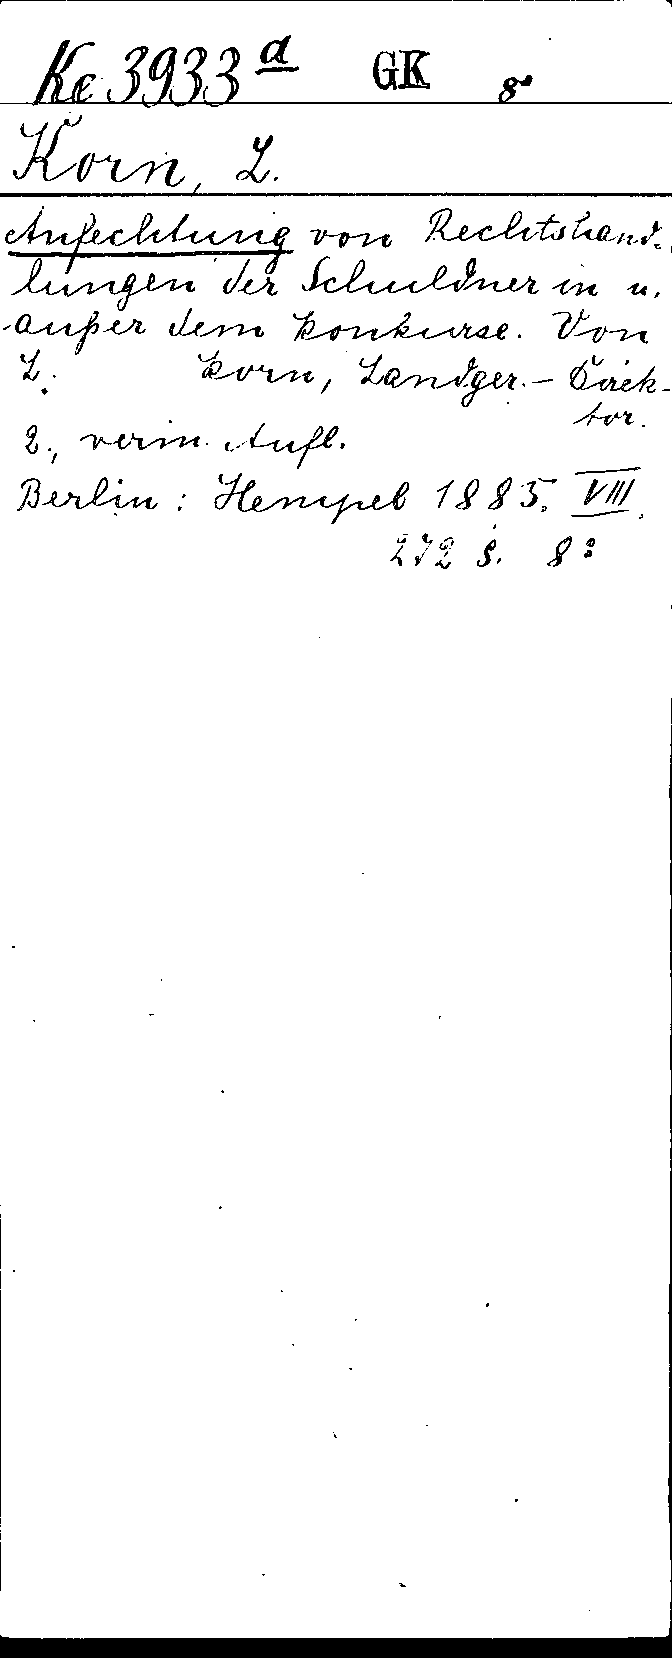 Ke 3933 a GK 8°
Korn, L.
Anfechtung von Rechtshand-
lungen der Schuldner in u.
außer dem Konkurse. Von
L. Korn, Landger.-Direk-
tor.
2., verm. Aufl.
Berlin: Hempel 1885. VIII,
272 S. 8°